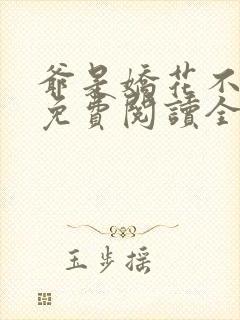 爺是嬌花不
免費閱讀全
玉步摇